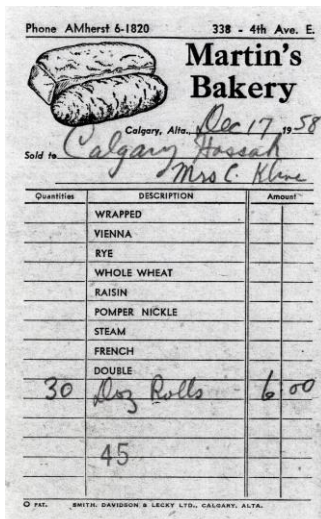 Phone AMherst 6-1820 338 - 4th Ave. E.
Martin's
Bakery
Calgary, Alta., Dec 17 1958
Sold to Calgary Hassah
Mrs C. Kline
Quantities DESCRIPTION Amount
WRAPPED
VIENNA
RYE
WHOLE WHEAT
RAISIN
POMPER NICKLE
STEAM
FRENCH
DOUBLE
30 Doz Rolls 6.00
45
PAT. SMITH, DAVIDSON & LECKY LTD., CALGARY, ALTA.